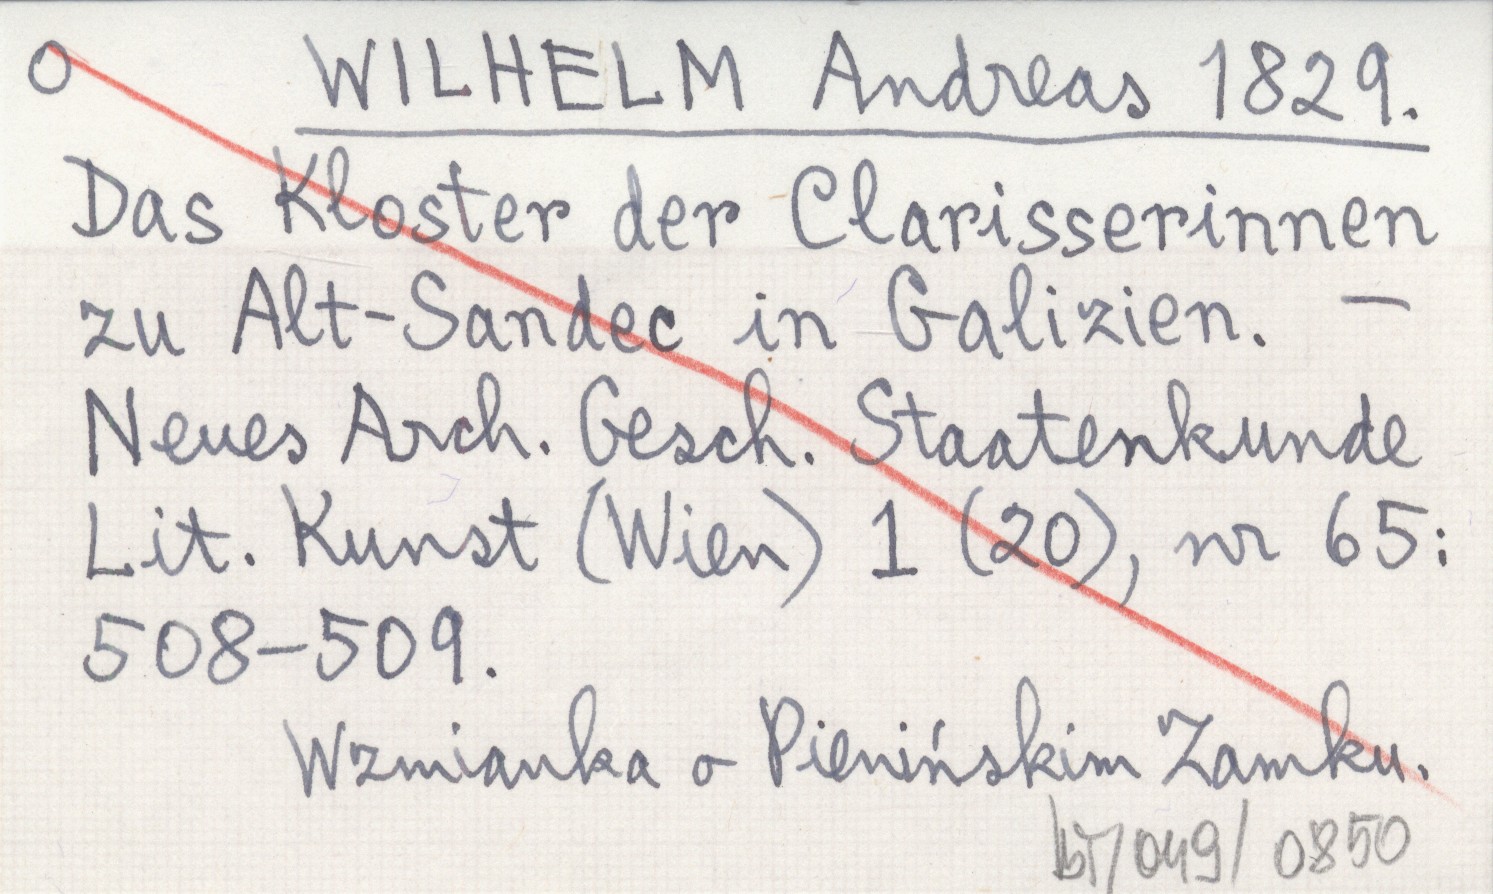 O WILHELM Andreas 1829.
Das Kloster der Clarisserinnen
zu Alt-Sandec in Galizien. —
Neues Arch. Gesch. Staatenkunde
Lit. Kunst (Wien) 1 (20), nr 65:
508-509.
Wzmianka o Pienińskim Zamku.
/049/ 0850